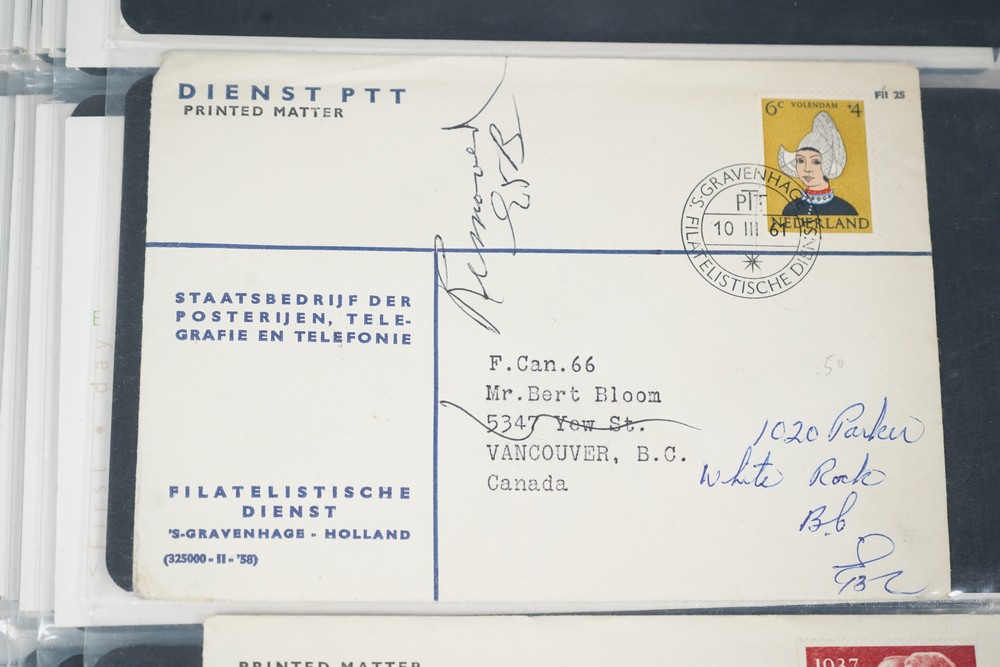 DIENST PTT
PRINTED MATTER
Removed
Fil 25
6c VOLENDAM +4
NEDERLAND
'S-GRAVENHAGE
PTT
10 III 61
FILATELISTISCHE DIENST
STAATSBEDRIJF DER
POSTERIJEN, TELE-
GRAFIE EN TELEFONIE
F.Can.66
Mr.Bert Bloom
5347 Yew St.
VANCOUVER, B.C.
Canada
.50
1020 Parker
White Rock
B.C.
FILATELISTISCHE
DIENST
'S-GRAVENHAGE - HOLLAND
(325000 - II - '58)
first day
PRINTED MATTER
1937